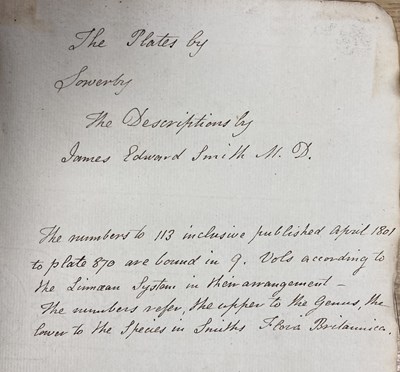 The Plates by
Sowerby
The Descriptions by
James Edward Smith M. D.
The numbers to 113 inclusive published April 1801
to plate 870 are bound in 9. Vols according to
the Linnæan System in their arrangement –
The numbers refer, the upper to the Genus, the
lower to the Species in Smiths Flora Britannica.